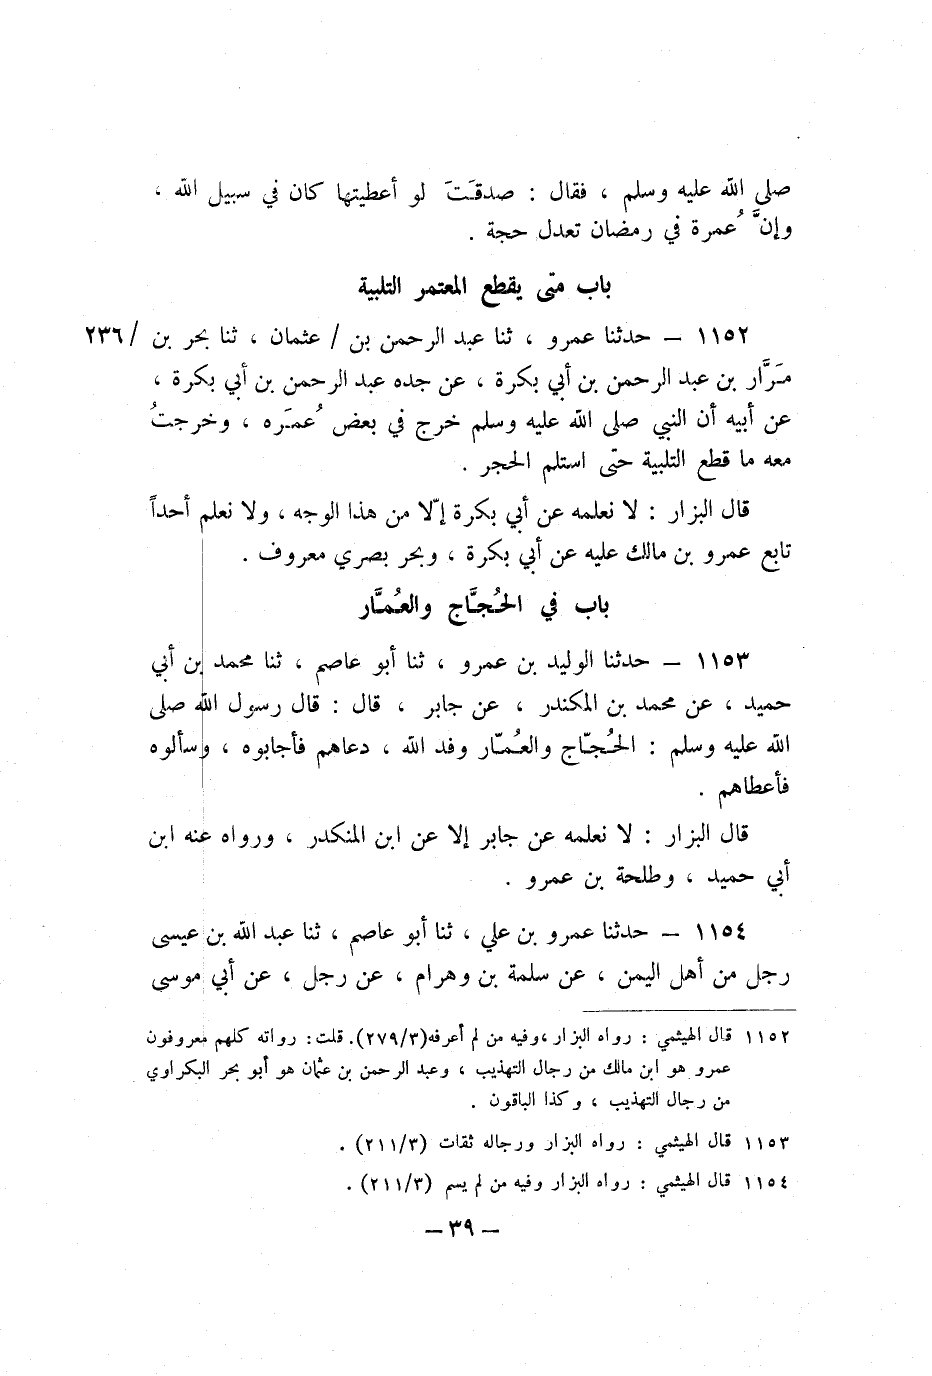 صلى الله عليه وسلم ، فقال : صدقَتَ لو أعطيتها كان في سبيل الله ،
وإنَّ عُمرة في رمضان تعدل حجة .
باب متى يقطع المعتمر التلبية
١١٥٢ – حدثنا عمرو ، ثنا عبد الرحمن بن / عثمان ، ثنا بحر بن / ٢٣٦
مَرَّار بن عبد الرحمن بن أبي بكرة ، عن جده عبد الرحمن بن أبي بكرة ،
عن أبيه أن النبي صلى الله عليه وسلم خرج في بعض عُمَره ، وخرجتُ
معه ما قطع التلبية حتى استلم الحجر .
قال البزار : لا نعلمه عن أبي بكرة إلّا من هذا الوجه ، ولا نعلم أحداً
تابع عمرو بن مالك عليه عن أبي بكرة ، وبحر بصري معروف .
باب في الحُجَّاج والعُمَّار
١١٥٣ – حدثنا الوليد بن عمرو ، ثنا أبو عاصم ، ثنا محمد بن أبي
حميد ، عن محمد بن المكندر ، عن جابر ، قال : قال رسول الله صلى
الله عليه وسلم : الحُجّاج والعُمّار وفد الله ، دعاهم فأجابوه ، وسألوه
فأعطاهم .
قال البزار : لا نعلمه عن جابر إلا عن ابن المنكدر ، ورواه عنه ابن
أبي حميد ، وطلحة بن عمرو .
١١٥٤ – حدثنا عمرو بن علي ، ثنا أبو عاصم ، ثنا عبد الله بن عيسى
رجل من أهل اليمن ، عن سلمة بن وهرام ، عن رجل ، عن أبي موسى
١١٥٢ قال الهيثمي : رواه البزار ، وفيه من لم أعرفه (٢٧٩/٣). قلت : رواته كلهم معروفون
عمرو هو ابن مالك من رجال التهذيب ، وعبد الرحمن بن عثمان هو أبو بحر البكراوي
من رجال التهذيب ، وكذا الباقون .
١١٥٣ قال الهيثمي : رواه البزار ورجاله ثقات (٢١١/٣) .
١١٥٤ قال الهيثمي : رواه البزار وفيه من لم يسم (٢١١/٣) .
– ٣٩ –